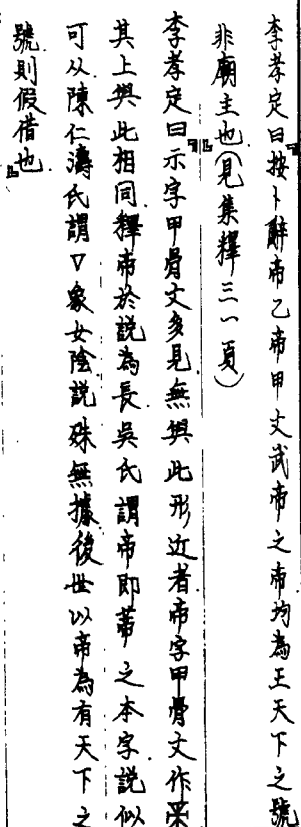 李孝定曰按卜辭帝乙帝甲文武帝之帝均為王天下之號
非廟主也』（見集釋三一頁）
李孝定曰『示字甲骨文多見無與此形近者帝字甲骨文作
其上與此相同釋帝於説為長吳氏謂帝即蒂之本字説似
可从陳仁濤氏謂▽象女陰説殊無據後世以帝為有天下之
號則假借也』